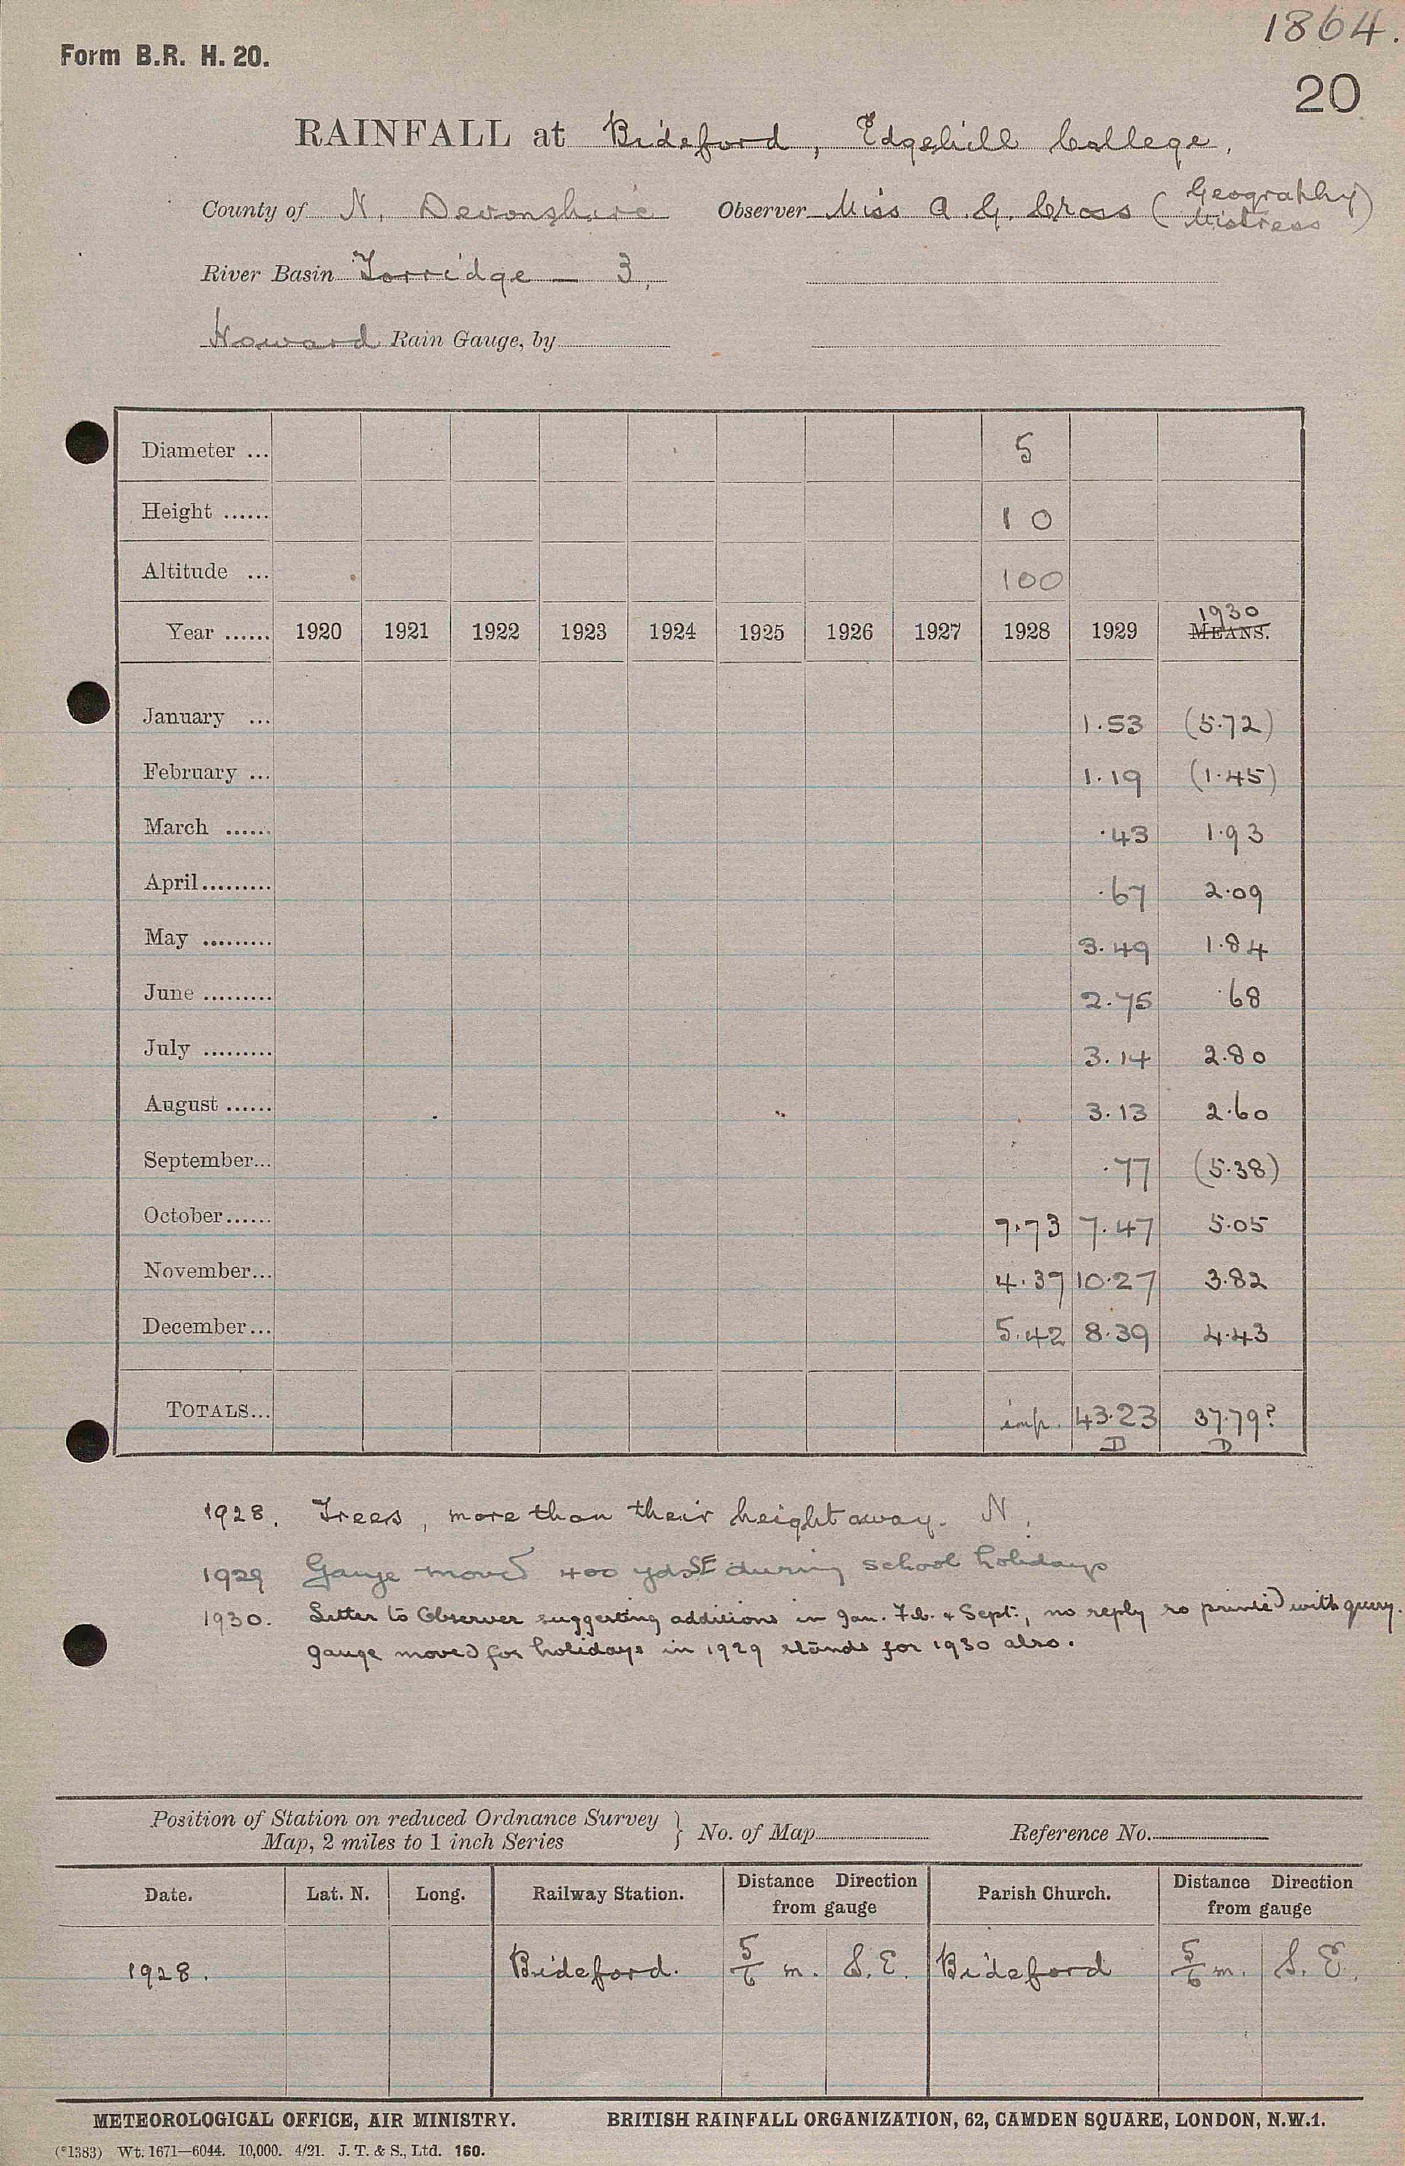 1864.
Form B.R. H. 20.
20
RAINFALL at Bideford, Edgehill College.
County of N. Devonshire Observer Miss A. G. Cross (Geography Mistress)
River Basin Torridge — 3.
Howard Rain Gauge, by
Diameter ... 5
Height ...... 10
Altitude ... 100
Year ...... 1920 1921 1922 1923 1924 1925 1926 1927 1928 1929 1930 MEANS.
January ... 1.53 (5.72)
February ... 1.19 (1.45)
March ...... .43 1.93
April......... .67 2.09
May ......... 3.49 1.84
June ......... 2.75 .68
July ......... 3.14 2.80
August ...... 3.13 2.60
September... .77 (5.38)
October...... 7.73 7.47 5.05
November... 4.37 10.27 3.82
December... 5.42 8.39 4.43
TOTALS... imp. 43.23 37.79?
D D
1928. Trees, more than their height away. N.
1929 Gauge moved 400 yds SE during school holidays
1930. Letter to Observer suggesting additions in Jan. Feb. & Sept., no reply so printed with query.
gauge moved for holidays in 1929 stands for 1930 also.
Position of Station on reduced Ordnance Survey
Map, 2 miles to 1 inch Series } No. of Map Reference No.
Date. Lat. N. Long. Railway Station. Distance Direction from gauge Parish Church. Distance Direction from gauge
1928. Bideford. 5/6 m. S.E. Bideford 5/6 m. S.E.
METEOROLOGICAL OFFICE, AIR MINISTRY. BRITISH RAINFALL ORGANIZATION, 62, CAMDEN SQUARE, LONDON, N.W.1.
(*1383) Wt. 1671—6044. 10,000. 4/21. J. T. & S., Ltd. 160.